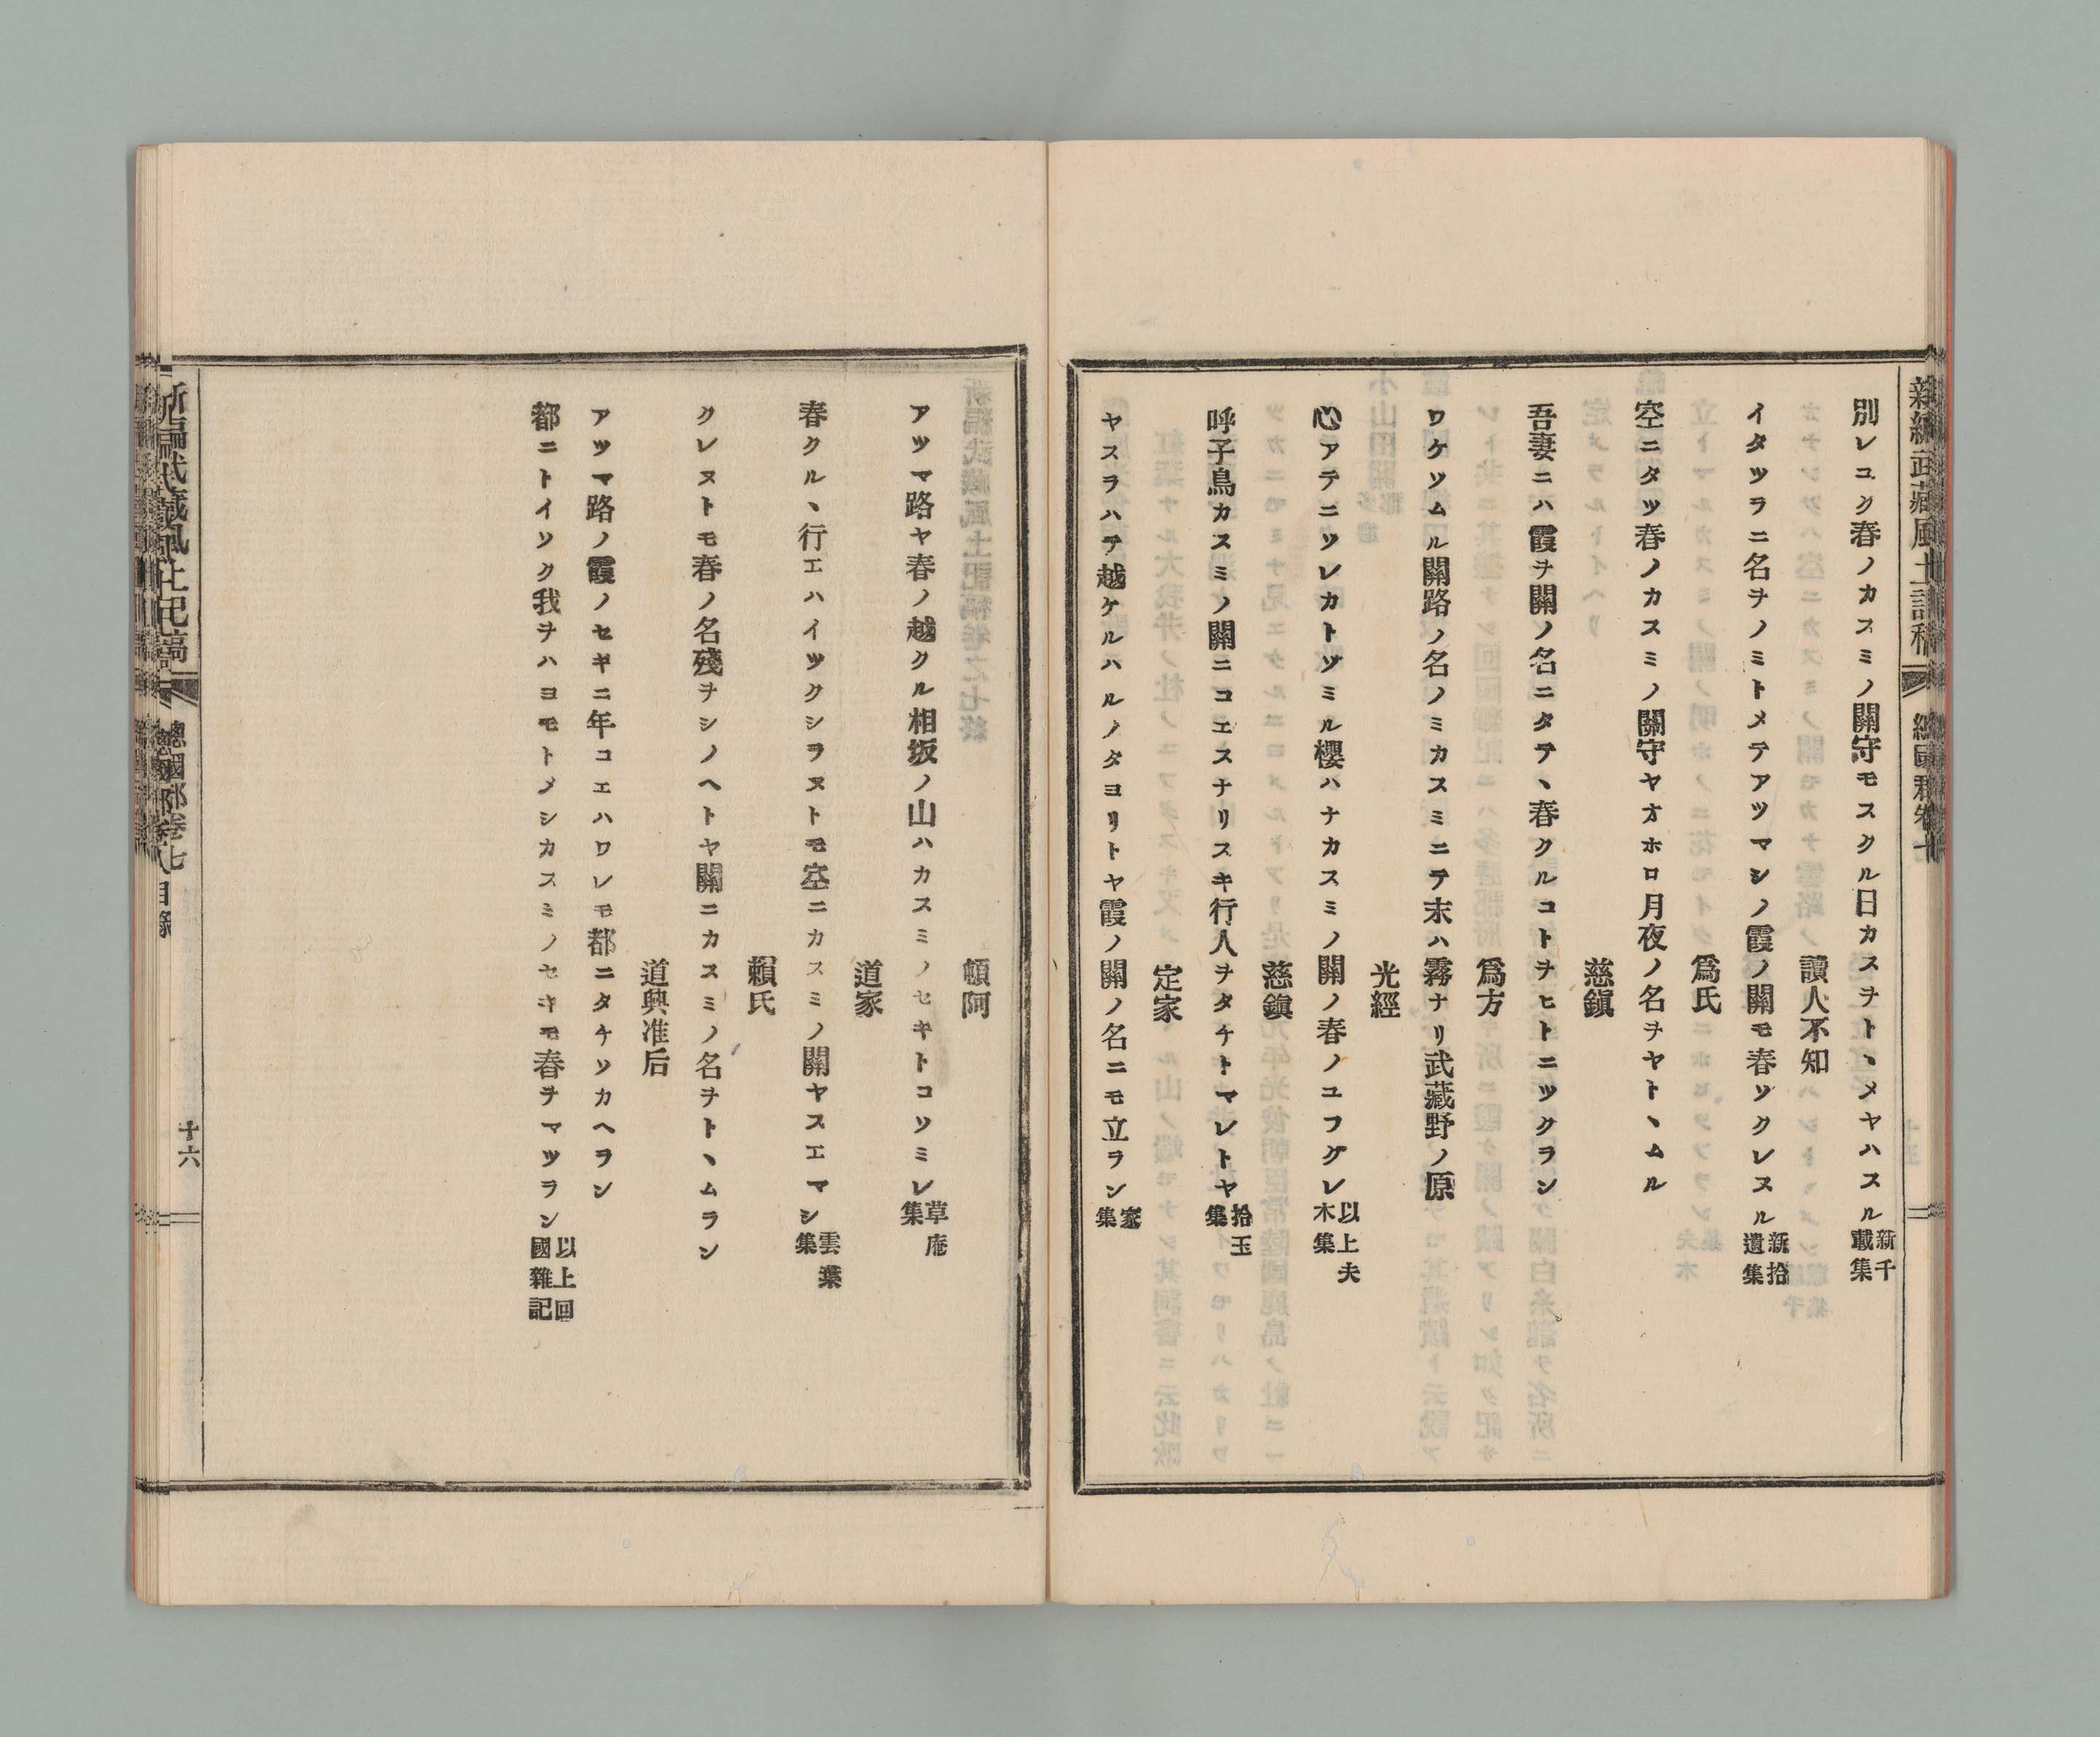 新編武藏風土記稿 總國郡卷七
別レユク春ノカスミノ關守モスクル日カスヲトヽメヤハスル 新千載集
讀人不知
イタツラニ名ヲノミトメテアツマシノ霞ノ關モ春ソクレヌル 新拾遺集
爲氏
空ニタツ春ノカスミノ關守ヤオホロ月夜ノ名ヲヤトヽムル
慈鎭
吾妻ニハ霞ヲ關ノ名ニタテヽ春クルコトヲヒトニツクラン
爲方
ワケソムル關路ノ名ノミカスミニテ末ハ霧ナリ武藏野ノ原
光經
心アテニソレカトソミル櫻ハナカスミノ關ノ春ノユフグレ 以上夫木集
慈鎭
呼子鳥カスミノ關ニコエスナリスキ行人ヲタチトマレトヤ 拾玉集
定家
ヤスラハテ越ケルハルノタヨリトヤ霞ノ關ノ名ニモ立ラン 家集
頓阿
アツマ路ヤ春ノ越クル相坂ノ山ハカスミノセキトコソミレ 草庵集
道家
春クルヽ行エハイツクシラヌトモ空ニカスミノ關ヤスエマシ 雲葉集
賴氏
クレヌトモ春ノ名殘ヲシノヘトヤ關ニカスミノ名ヲトヽムラン
道興准后
アツマ路ノ霞ノセキニ年コエハワレモ都ニタチソカヘラン
都ニトイソク我ヲハヨモトメシカスミノセキモ春ヲマツラン 以上回國雜記
新編武藏風土記稿 總國郡卷七 十六